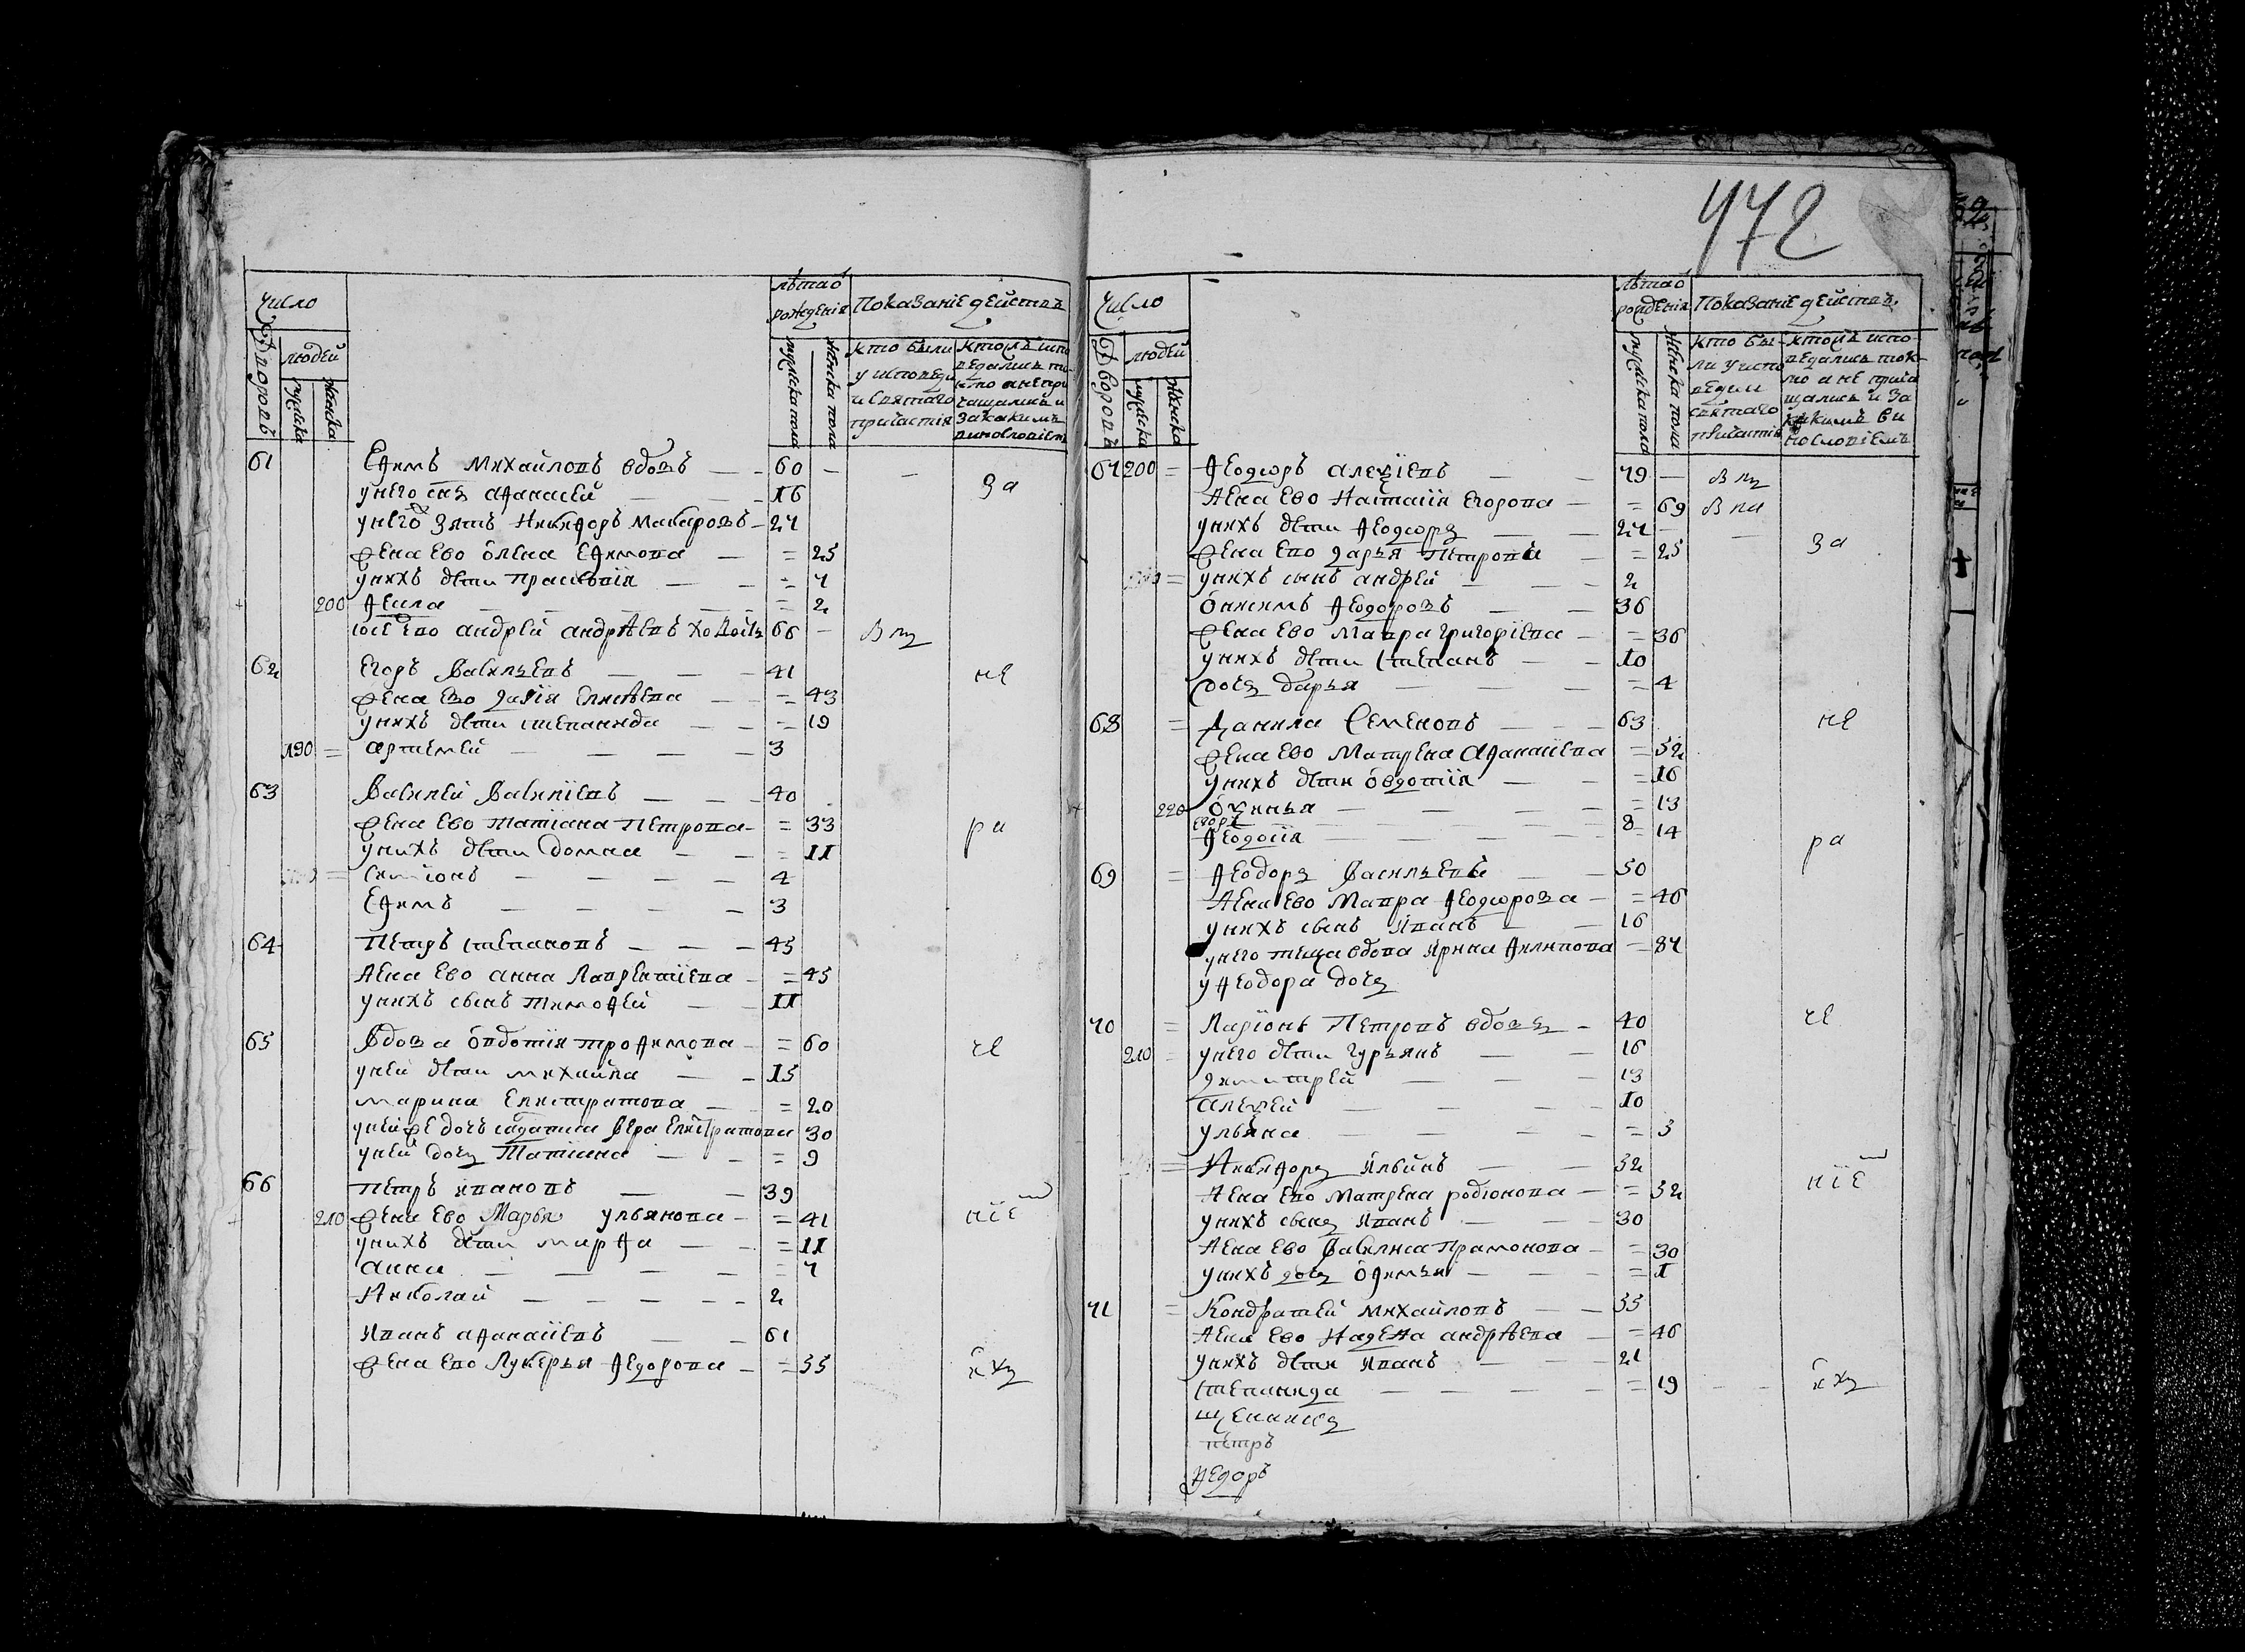 472
Число
лѣта ѿ рождения
Показание дѣйствъ
Дворовъ
людей
мужска
женска
мужска пола
женска пола
кто были у исповеди и святаго причастия
кто исповедались токмо а не причащались и за какимъ винословиемъ
61 Ефимъ Михайловъ вдовъ 60
у него снъ Афанасей 16
у него зять Никифоръ Макаровъ 24
жена ево Олена Ефимова 25
у нихъ дѣти Прасковiя 7
200 Фекла 2
Андрей Андрѣевъ 66
62 Егоръ Васильевъ 41 не
жена ево Дарiя Елисѣева 43
у нихъ дѣти Степанида 19
190 Артемей 3
63 Василей Васильевъ 40
жена ево Татiана Петрова 33 ра
у нихъ дѣти Домна 11
Симiонъ 4
Ефимъ 3
64 Петръ Степановъ 45
жена ево Анна Лаврентiева 45
у нихъ сынъ Тимофей 11
65 Вдова Овдотiя Трофимова 60 че
у ней дѣти Михайла 15
Марина Елистратова 20
у ней же дочь салдатка Вера Елистратова 30
у ней дочь Татiана 9
66 Петръ Ивановъ 39
210 жена ево Марья Ульянова 41 нiе
у нихъ дѣти Марфа 11
Анна 7
Николай 2
Иванъ Афанасiевъ 61
жена ево Лукерья Федорова 55 ихъ
Число
лѣта ѿ рождения
Показание дѣйствъ
Дворовъ
людей
мужска
женска
мужска пола
женска пола
кто были у исповеди и святаго причастия
кто исповедались токмо а не причащались и за какимъ винословиемъ
67 200 Феодоръ Алексiевъ 79
жена ево Настасiя Егорова 69
у нихъ дѣти Феодоръ 24
жена ево Дарья Петрова 25 за
у нихъ сынъ Андрей 2
Онисимъ Феодоровъ 36
жена ево Мавра Григорiева 36
у нихъ дѣти Степанъ 10
дочь Дарья 4
68 Данила Семеновъ 63 не
жена ево Матрена Афанасiева 52
у нихъ дѣти Овдотiя 16
220 Оксинья 13
Егоръ 8
Феодосiя 14 ра
69 Феодоръ Васильевъ 50
жена ево Мавра Феодорова 46
у нихъ сынъ Иванъ 16
у него теща вдова Ирина Филипова 87
у Феодора дочь
70 Ларiонъ Петровъ вдовъ 40 че
210 у него дѣти Гурьянъ 16
Димитрей 13
Алексей 10
Ульяна 3
Никифоръ Ильинъ 52
жена ево Матрена Родiонова 52 нiе
у нихъ сынъ Иванъ 30
жена ево Василиса Парамонова 30
у нихъ дочь Офимья 1
71 Кондратей Михайловъ 55
жена ево Надежа Андрѣева 46
у нихъ дѣти Иванъ 21
Степанида 19 ихъ
Петръ
Федоръ